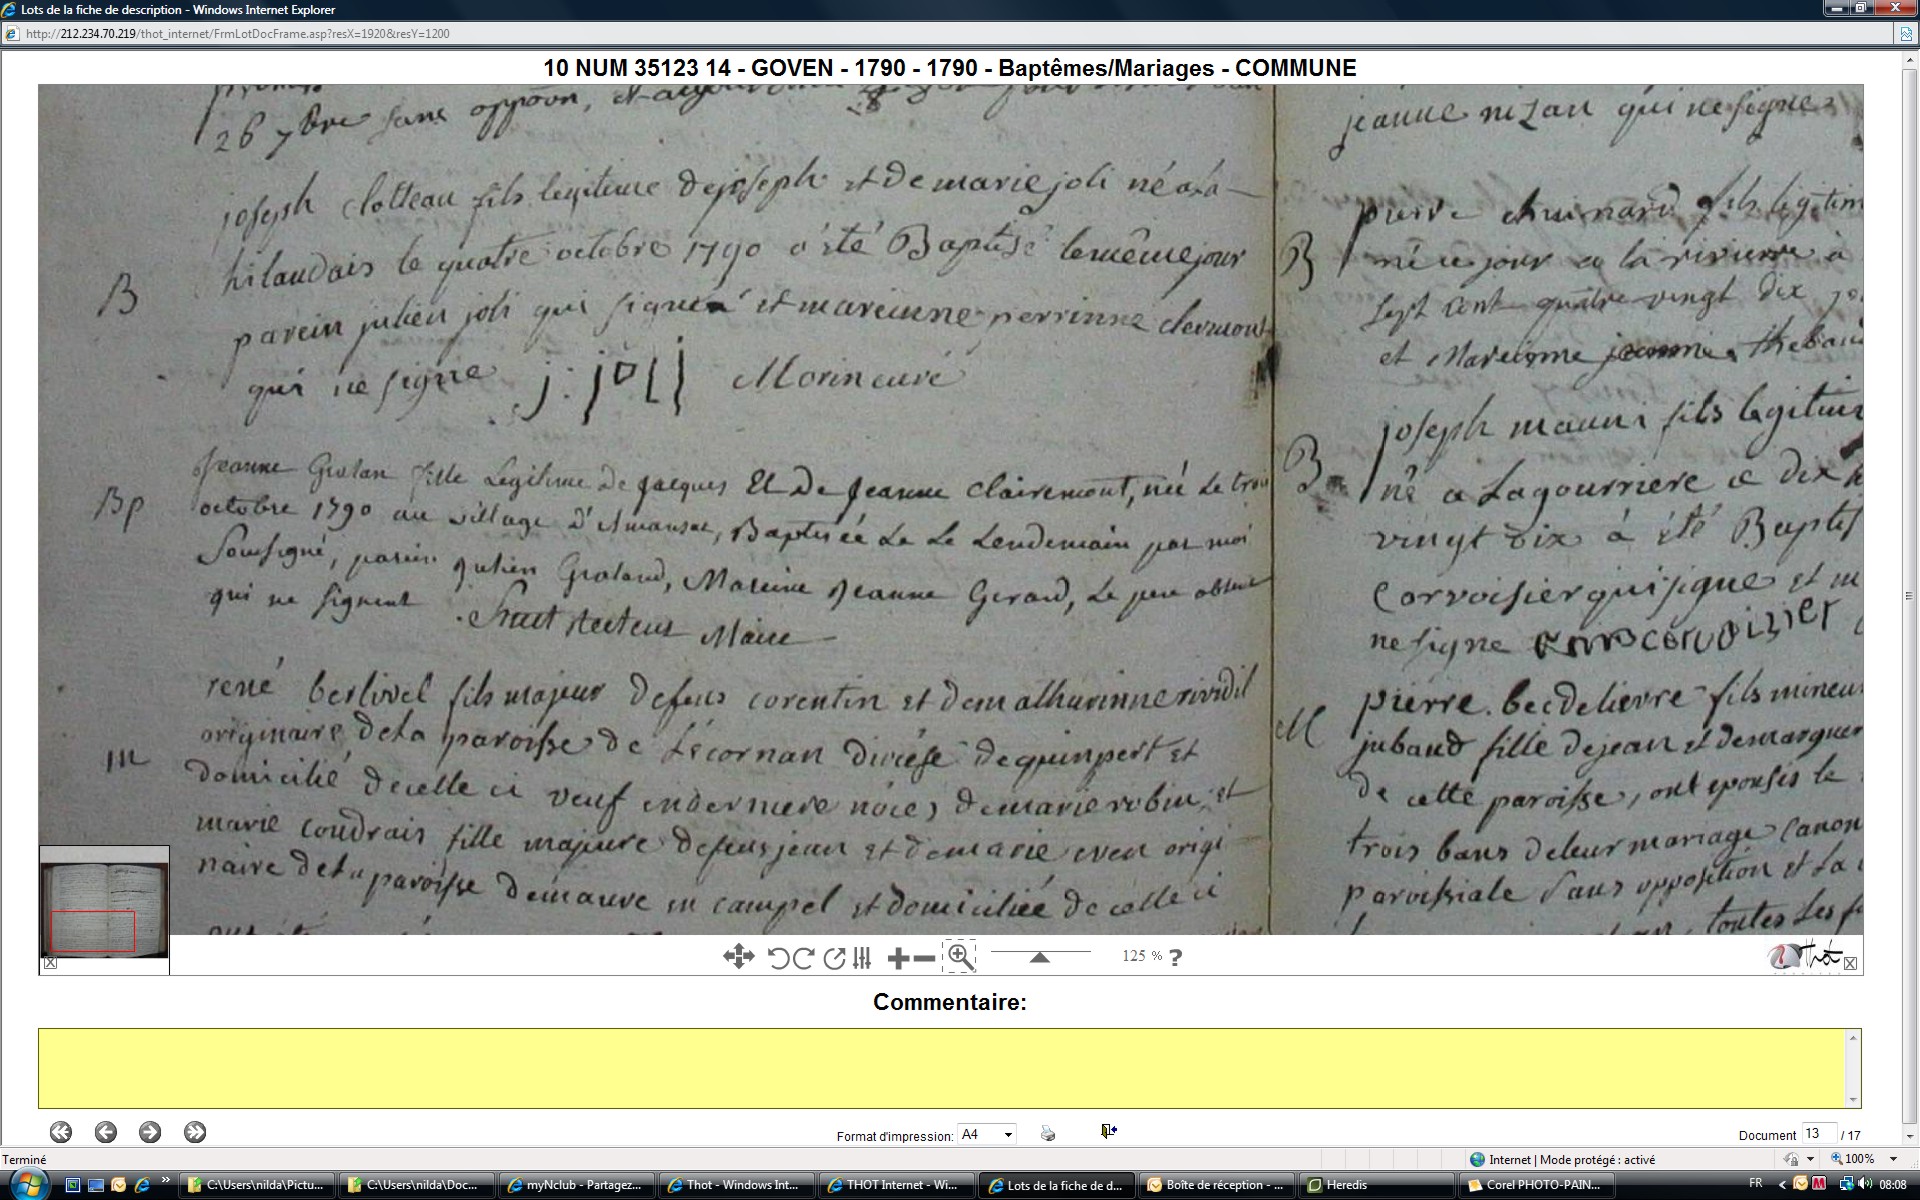 Lots de la fiche de description - Windows Internet Explorer
http://212.234.70.219/thot_internet/FrmLotDocFrame.asp?resX=1920&resY=1200
10 NUM 35123 14 - GOVEN - 1790 - 1790 - Baptêmes/Mariages - COMMUNE
26 7bre sans
joseph Clotteau fils legitime de joseph et de marie joli né a la
hilaudais le quatre octobre 1790 a été Baptisé le même jour
B
parein julien joli qui signe et mareinne perrinne clermont
qui ne signe j: joli Morin curé
Jeanne Grolan fille Legitime De jacques Et De Jeanne Clairemont, née Le trois
Bp
octobre 1790 au village Baptisée Le Le Lendemain par moi
Soussigné, parein Julien Groland, Mareine Jeanne Gerard, Le pere absent
qui ne signent recteur Maire
rené berlivel fils majeur defeus corentin et de mathurinne rividil
originaire dela paroisse de Lécornan diocése de quinpert et
m
domicilié de celle ci veuf en derniere noces de marie robin et
marie coudrais fille majeure defeus jean et de marie even origi
naire dela paroisse de maure en campel et domiciliée de celle ci
jeanne nizan qui ne signe
pierre chuinard fils legitim
B
né ce jour a la riviere à
sept cent quatre vingt dix
et Mareinne jeanne thebaud
joseph mauni fils legitim
B
né a Lagourriere ce dix
vingt dix à été Baptis
Corvoisier qui signe et m
ne signe corvoizier
pierre becdelievre fils mineur
M
jubaud fille de jean et de marguer
de cette paroisse, ont epousés le
trois bans de leur mariage canon
paroissiale sans opposition et la
toutes les f
125 % ?
Thot
Commentaire:
Format d'impression: A4
Document 13 / 17
Terminé
Internet | Mode protégé : activé
100%
C:\Users\nilda\Pictu...
C:\Users\nilda\Doc...
myNclub - Partagez...
Thot - Windows Int...
THOT Internet - Wi...
Lots de la fiche de d...
Boîte de réception - ...
Heredis
Corel PHOTO-PAIN...
FR
08:08